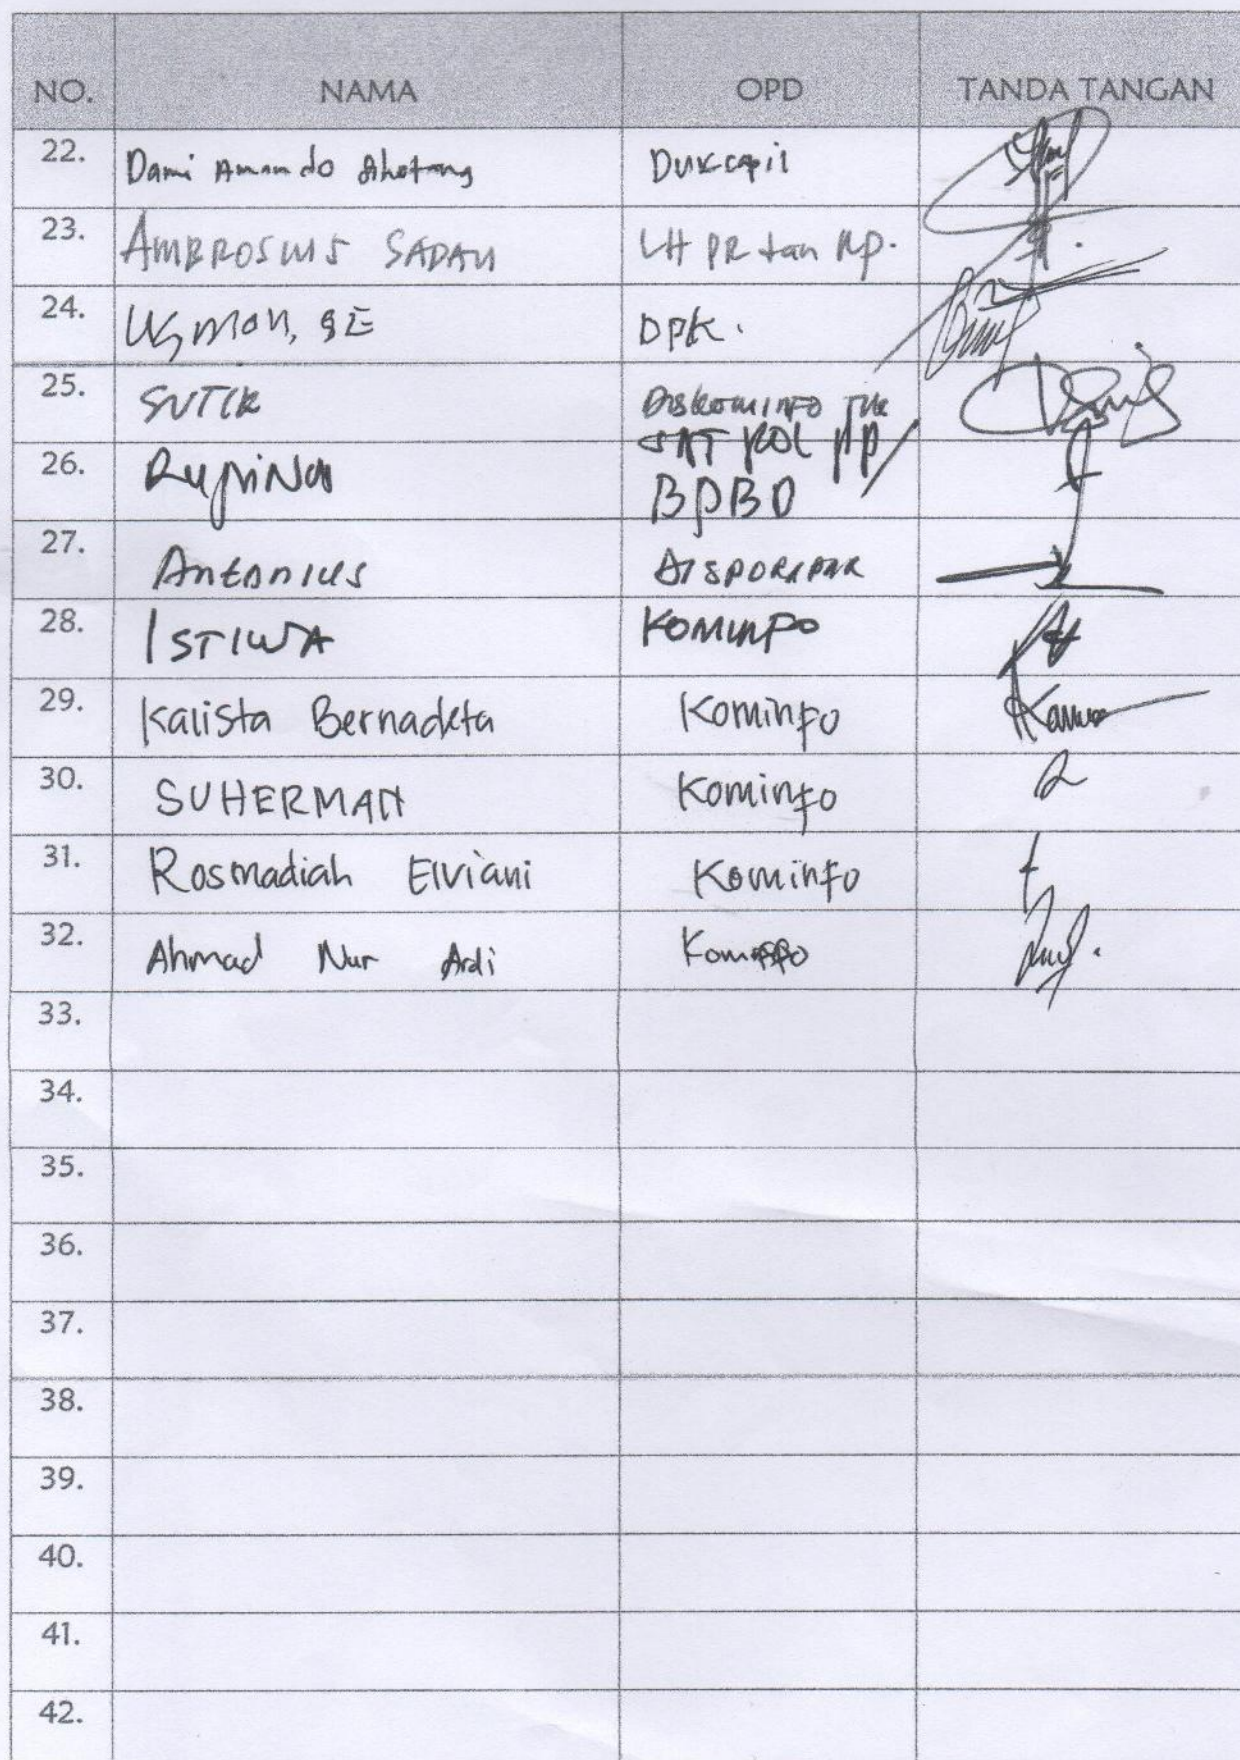 NO. NAMA OPD TANDA TANGAN
22. Dami Amando Dukcapil
23. AMBROSIUS SADAU LH PR dan KP.
24. Usman, SE DPK.
25. SUTIK DISKOMINFO
26. Rupina SAT POL PP/
BPBD
27. Antonius DISPORAPAR
28. ISTIWA KOMINFO
29. Kalista Bernadeta Kominfo
30. SUHERMAN Kominfo
31. Rosmadiah Elviani Kominfo
32. Ahmad Nur Ardi Kominfo
33.
34.
35.
36.
37.
38.
39.
40.
41.
42.